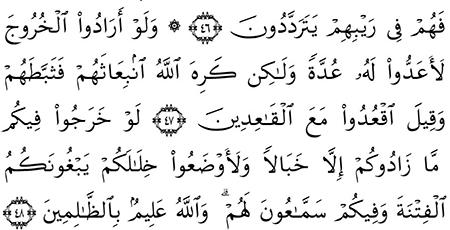 فَهُمۡ فِي رَيۡبِهِمۡ يَتَرَدَّدُونَ ٤٦ ۞ وَلَوۡ أَرَادُواْ ٱلۡخُرُوجَ
لَأَعَدُّواْ لَهُۥ عُدَّةٗ وَلَٰكِن كَرِهَ ٱللَّهُ ٱنۢبِعَاثَهُمۡ فَثَبَّطَهُمۡ
وَقِيلَ ٱقۡعُدُواْ مَعَ ٱلۡقَٰعِدِينَ ٤٧ لَوۡ خَرَجُواْ فِيكُم
مَّا زَادُوكُمۡ إِلَّا خَبَالٗا وَلَأَوۡضَعُواْ خِلَٰلَكُمۡ يَبۡغُونَكُمُ
ٱلۡفِتۡنَةَ وَفِيكُمۡ سَمَّٰعُونَ لَهُمۡۗ وَٱللَّهُ عَلِيمُۢ بِٱلظَّٰلِمِينَ ٤٨